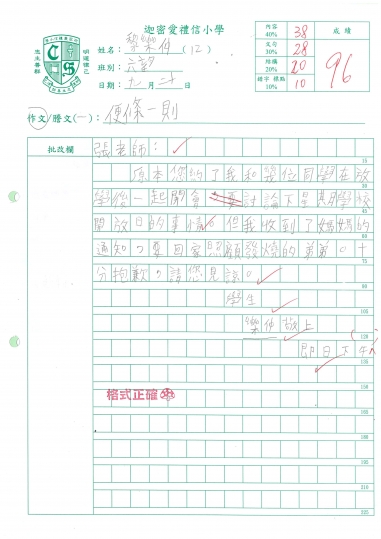 迦密愛禮信小學
姓名：黎樂俏（12）
班別：六望
日期：九月二十日
作文/謄文(一)：便條一則
內容 40% 38
文句 30% 28
結構 20% 20
錯字 標點 10% 10
成績
96
批改欄
張老師：
原本您約了我和幾位同學在放
學後一起開會，要討論下星期學校
開放日的事情。但我收到了媽媽的
通知，要回家照顧發燒的弟弟。十
分抱歉，請您見諒。
學生
樂俏敬上
即日下午
格式正確
15
30
45
60
75
90
105
120
135
150
165
180
195
210
225